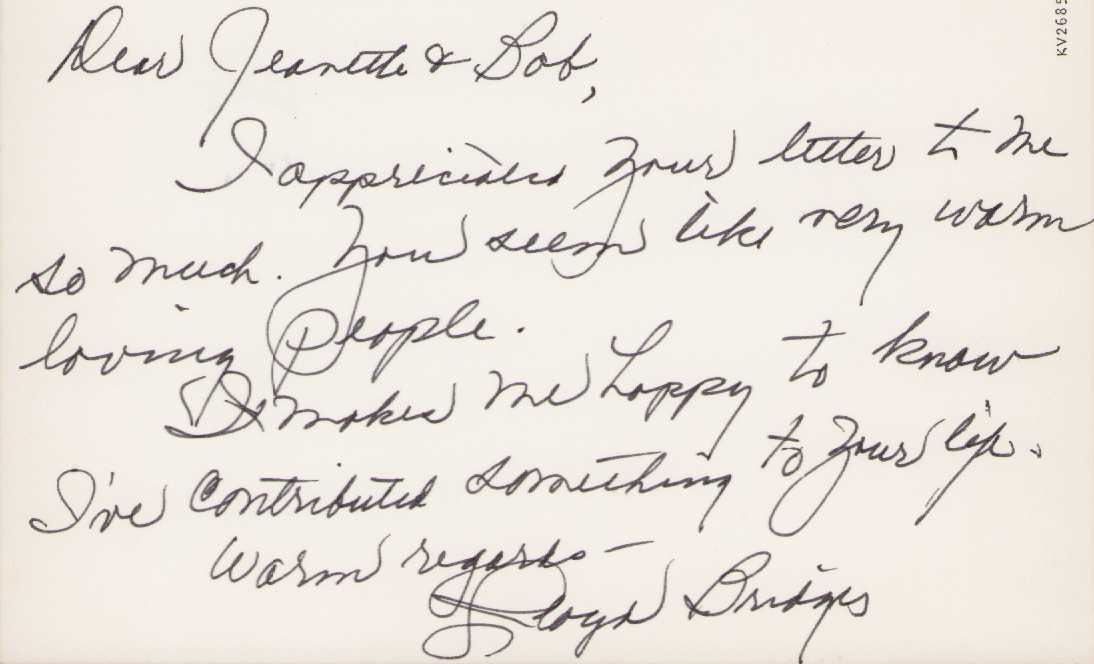 Dear Jeanette & Bob,
I appreciated your letter to me
so much. You seem like very warm
loving people.
It makes me happy to know
I've contributed something to your life.
Warm regards —
Lloyd Bridges
KV2685